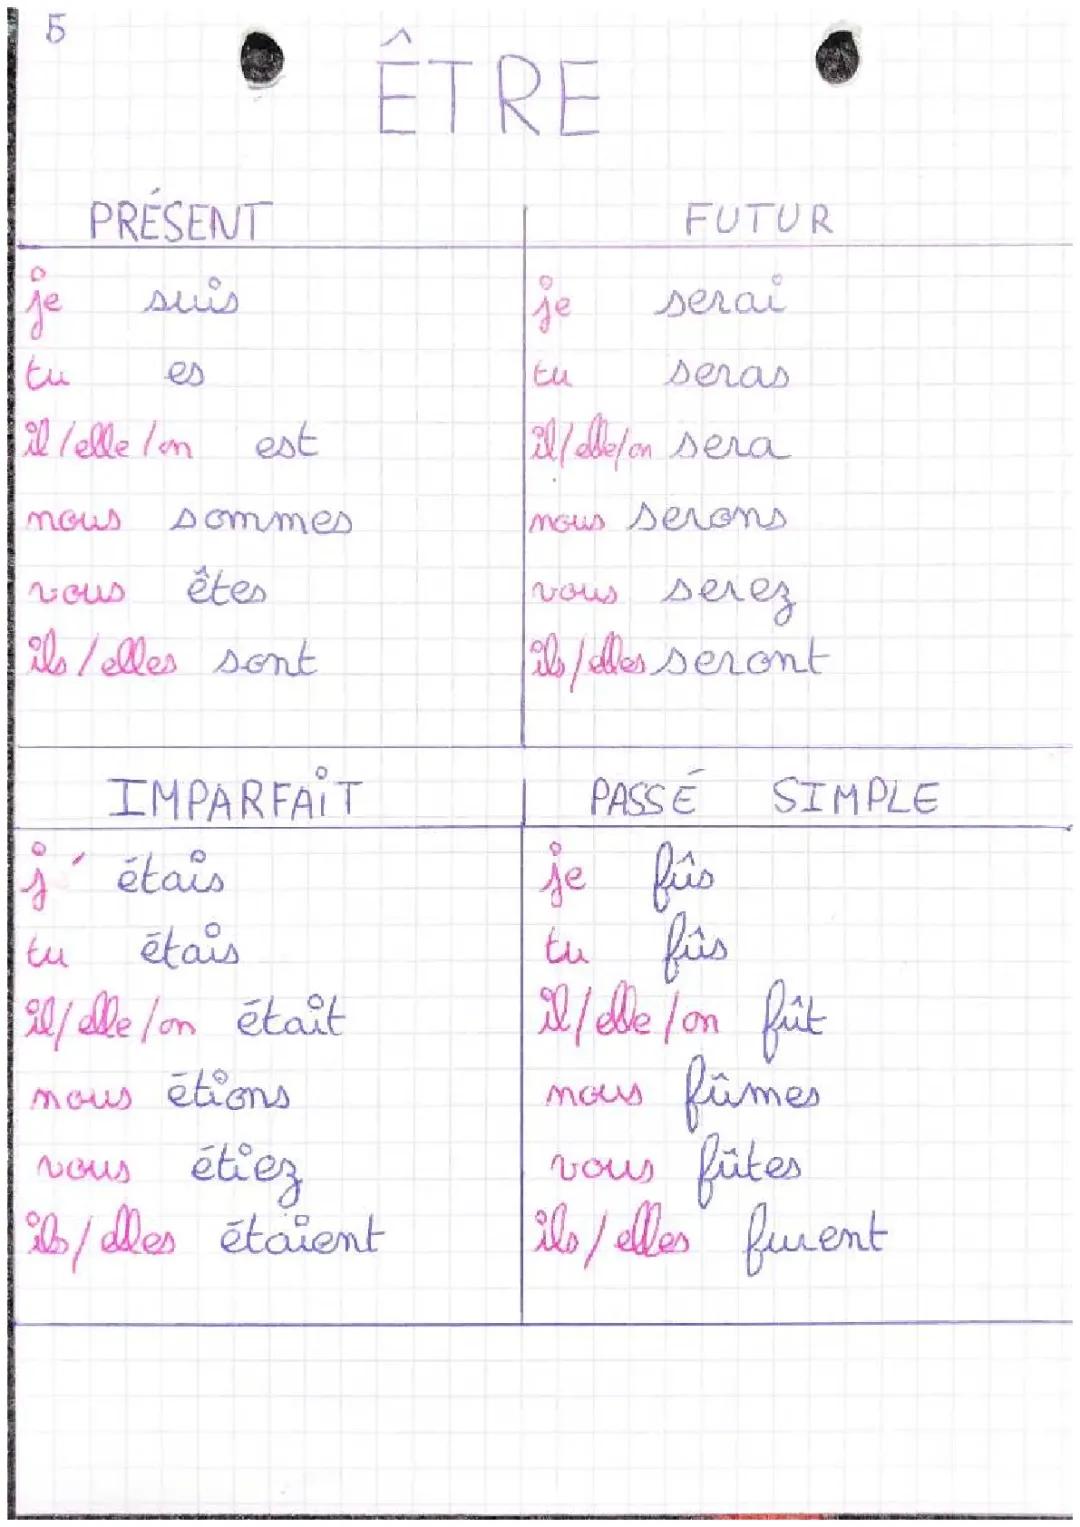 5
ÊTRE
PRÉSENT
je suis
tu es
il/elle/on est
nous sommes
vous êtes
ils/elles sont
FUTUR
je serai
tu seras
il/elle/on sera
nous serons
vous serez
ils/elles seront
IMPARFAIT
j'étais
tu étais
il/elle/on était
nous étions
vous étiez
ils/elles étaient
PASSÉ SIMPLE
je fûs
tu fûs
il/elle/on fût
nous fûmes
vous fûtes
ils/elles furent